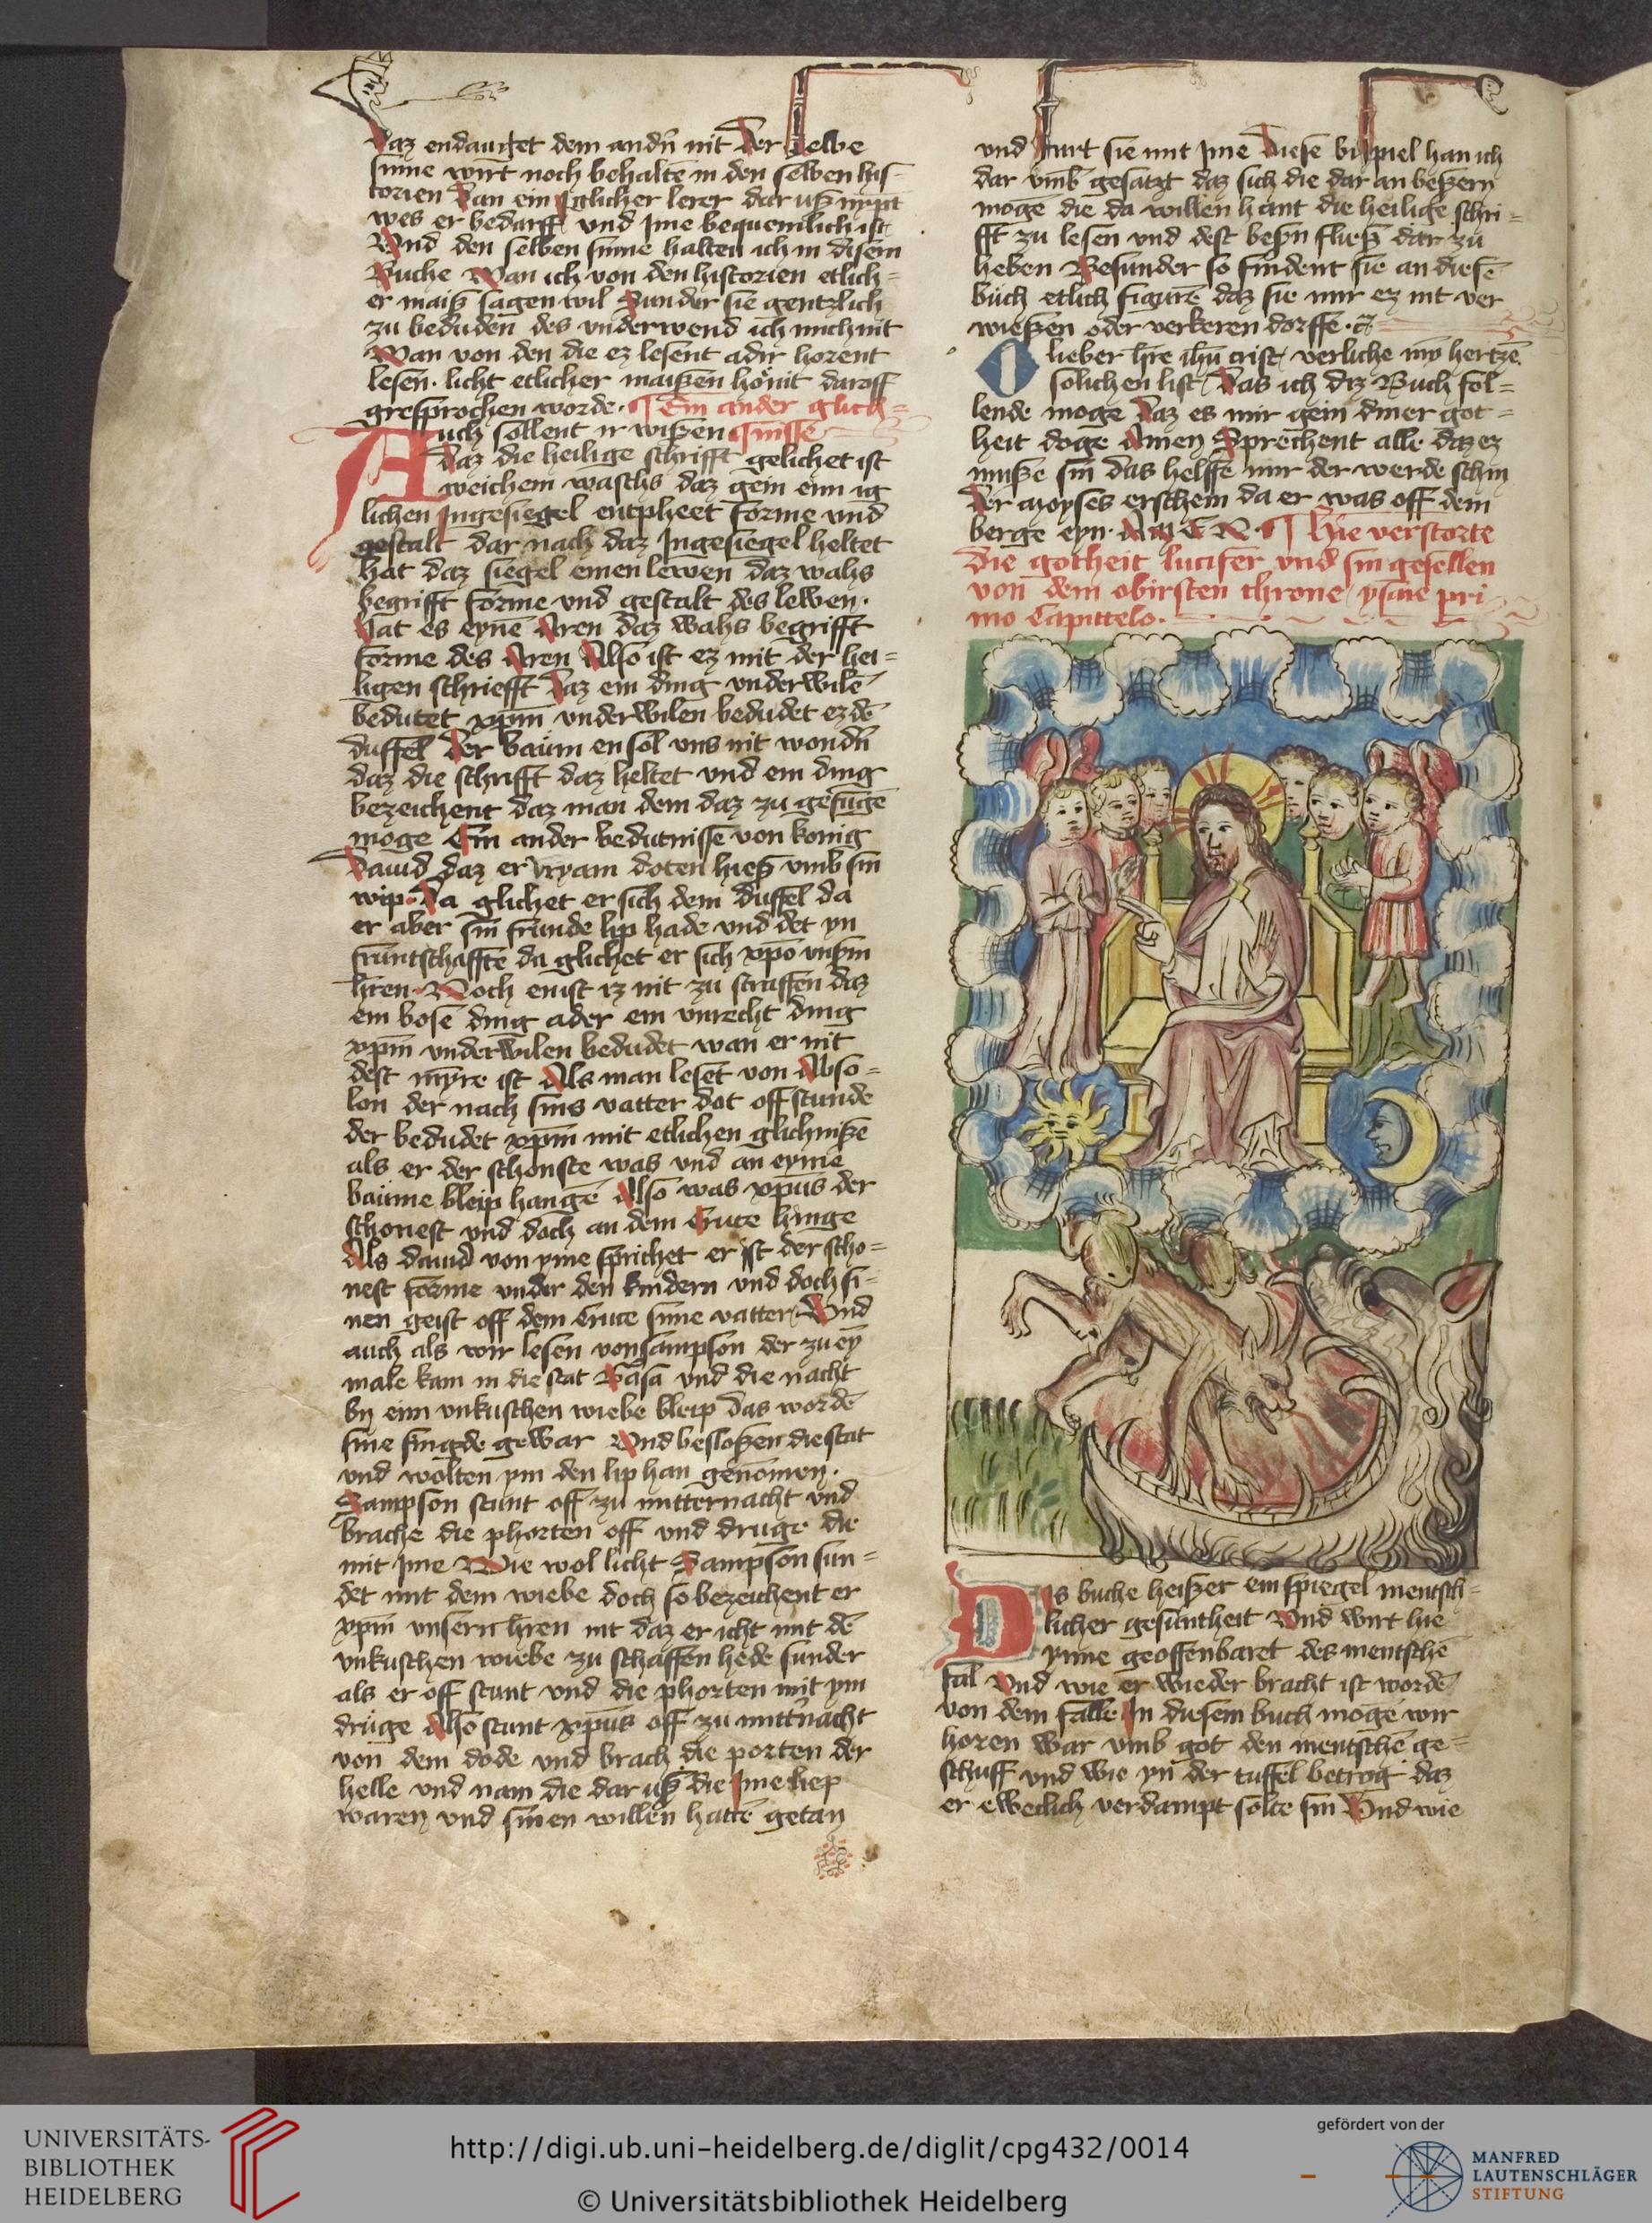 daz endauget dem andn̄ nit Der selbe
sinne wirt noch behaltē in den selben his-
torien Dan ein iglicher lerer dar usz nympt
wes er bedarff und Ime bequemlich ist
Und den selben sinne halten ich in disem
Buche Wan ich von den historien etlich-
er maisz sagen wil Sunder sie gentzlich
zu beduden des underwend ich mich nit
Wan von den die ez lesent adir horent
lesen. licht etlicher maiszen honit daroff
gesprochen worde. Ein ander glich-
Auch sollent ir wiszen nisse
daz die heilige schrifft gelichet ist
weichem waschs daz gein eim ig
lichen Ingesiegel entpheet forme und
gestalt dar nach daz Ingesiegel heltet
hat daz siegel einen lewen daz wahs
begrifft forme und gestalt des lewen.
Hat es eynē Aren daz wahs begrifft
forme des Aren Also ist ez mit der hei-
ligen schriefft Daz ein ding underwilē
bedutet xp̄m underwilen bedudet ez dē
duffel Der baum en sol uns nit wondn̄
daz die schrifft daz heltet und ein ding
bezeichent daz man dem daz zu gefuge
moge Ein ander bedutnisse von konig
David daz er Uryam doten hiesz umb sin
wip. Da glichet er sich dem duffel da
er aber sin frunde lip hade und det yn
fruntschaffte da glichet er sich xp̄o uns̄m
hren Noch enist iz nit zu straffen daz
ein bose ding ader ein unrecht ding
xp̄m underwilen bedudet wan er nit
dest myre ist Als man leset von Abso-
lon der nach sins vatter dot off stunde
der bedudet xp̄m mit etlichen glichnisze
als er der schonste was und an eyme
baume bleip hangē Also was xp̄us der
schonest und doch an dem Cruce hinge
Als david von yme sprichet er ist der scho-
nest forme under den kindern und doch si-
nen geist off dem Cruce sime vatter Und
auch als wir lesen von sampson der zu ey
male kam in die stat Gasa und die nacht
by eim unkuschen wiebe bleip das wordē
sine fingde gewar Und besloszen die stat
und wolten ym den lip han genomen.
Sampson stunt off zu mitternacht und
brache die phorten off und druge die
mit Ime Wie wol licht Sampson sun-
det mit dem wiebe doch so bezeichent er
xp̄m unsern hren nit daz er icht mit dē
unkuschen wiebe zu schaffen hede sunder
als er off stunt und die phorten mit ym
druge Also stunt xp̄us off zu mitt̄nacht
von dem dode und brach die porten der
helle und nam die dar usz die Ime liep
waren und sinen willen hattē getan
und furt sie mit Ime Diese bispiel han ich
dar umb gesatzt daz sich die dar an beszern
moge die da willen hant die heilige schri-
fft zu lesen und dest besz̄n fliesz dar zu
heben Besunder so findent sie an diesē
buch etlich figurē daz sie mir ez nit ver
wieszen oder verkeren dorffe.
O lieber hre ihu crist verliche mȳ hertzē
solichen list Das ich diz Buch fol-
lende moge Daz es mir gein diner got-
heit doge Amen Sprechent alle daz ez
musze sin das helffe mir der werde schin
Der moyses erschein da er was off dem
berge eyn. AMEN. Hie verstorte
die gotheit lucifer und sin gesellen
von dem obirsten throne ysaie pri
mo Capittelo.
Dis buche heiszet ein spiegel mentsch-
licher gesuntheit Und wirt hie
ynne geoffenbaret des mentschē
fal Und wie er wieder bracht ist wordē
von dem falle In diesem buch mogē wir
horen war umb got den mentschē ge-
schuff und wie yn der tuffel betrog daz
er ewecklich verdampt solte sin Und wie
UNIVERSITÄTS-
BIBLIOTHEK
HEIDELBERG
http://digi.ub.uni-heidelberg.de/diglit/cpg432/0014
© Universitätsbibliothek Heidelberg
gefördert von der
MANFRED
LAUTENSCHLÄGER
STIFTUNG